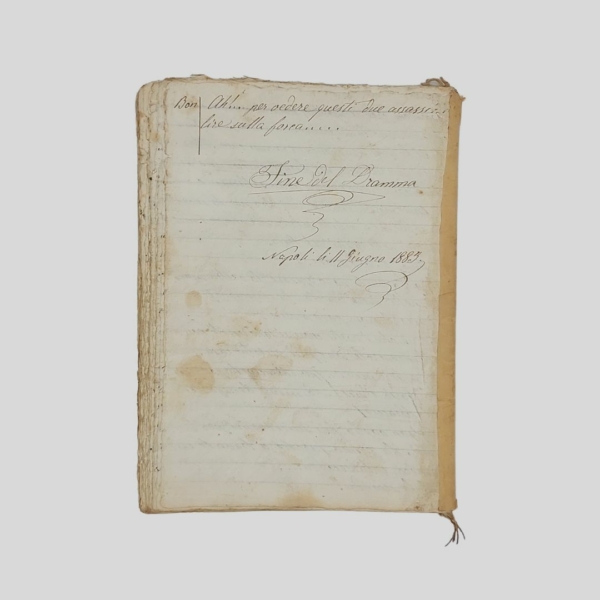 Bon Ah!... per vedere questi due assassi..
lire sulla forca....
Fine del Dramma
Napoli li 11 Giugno 1885